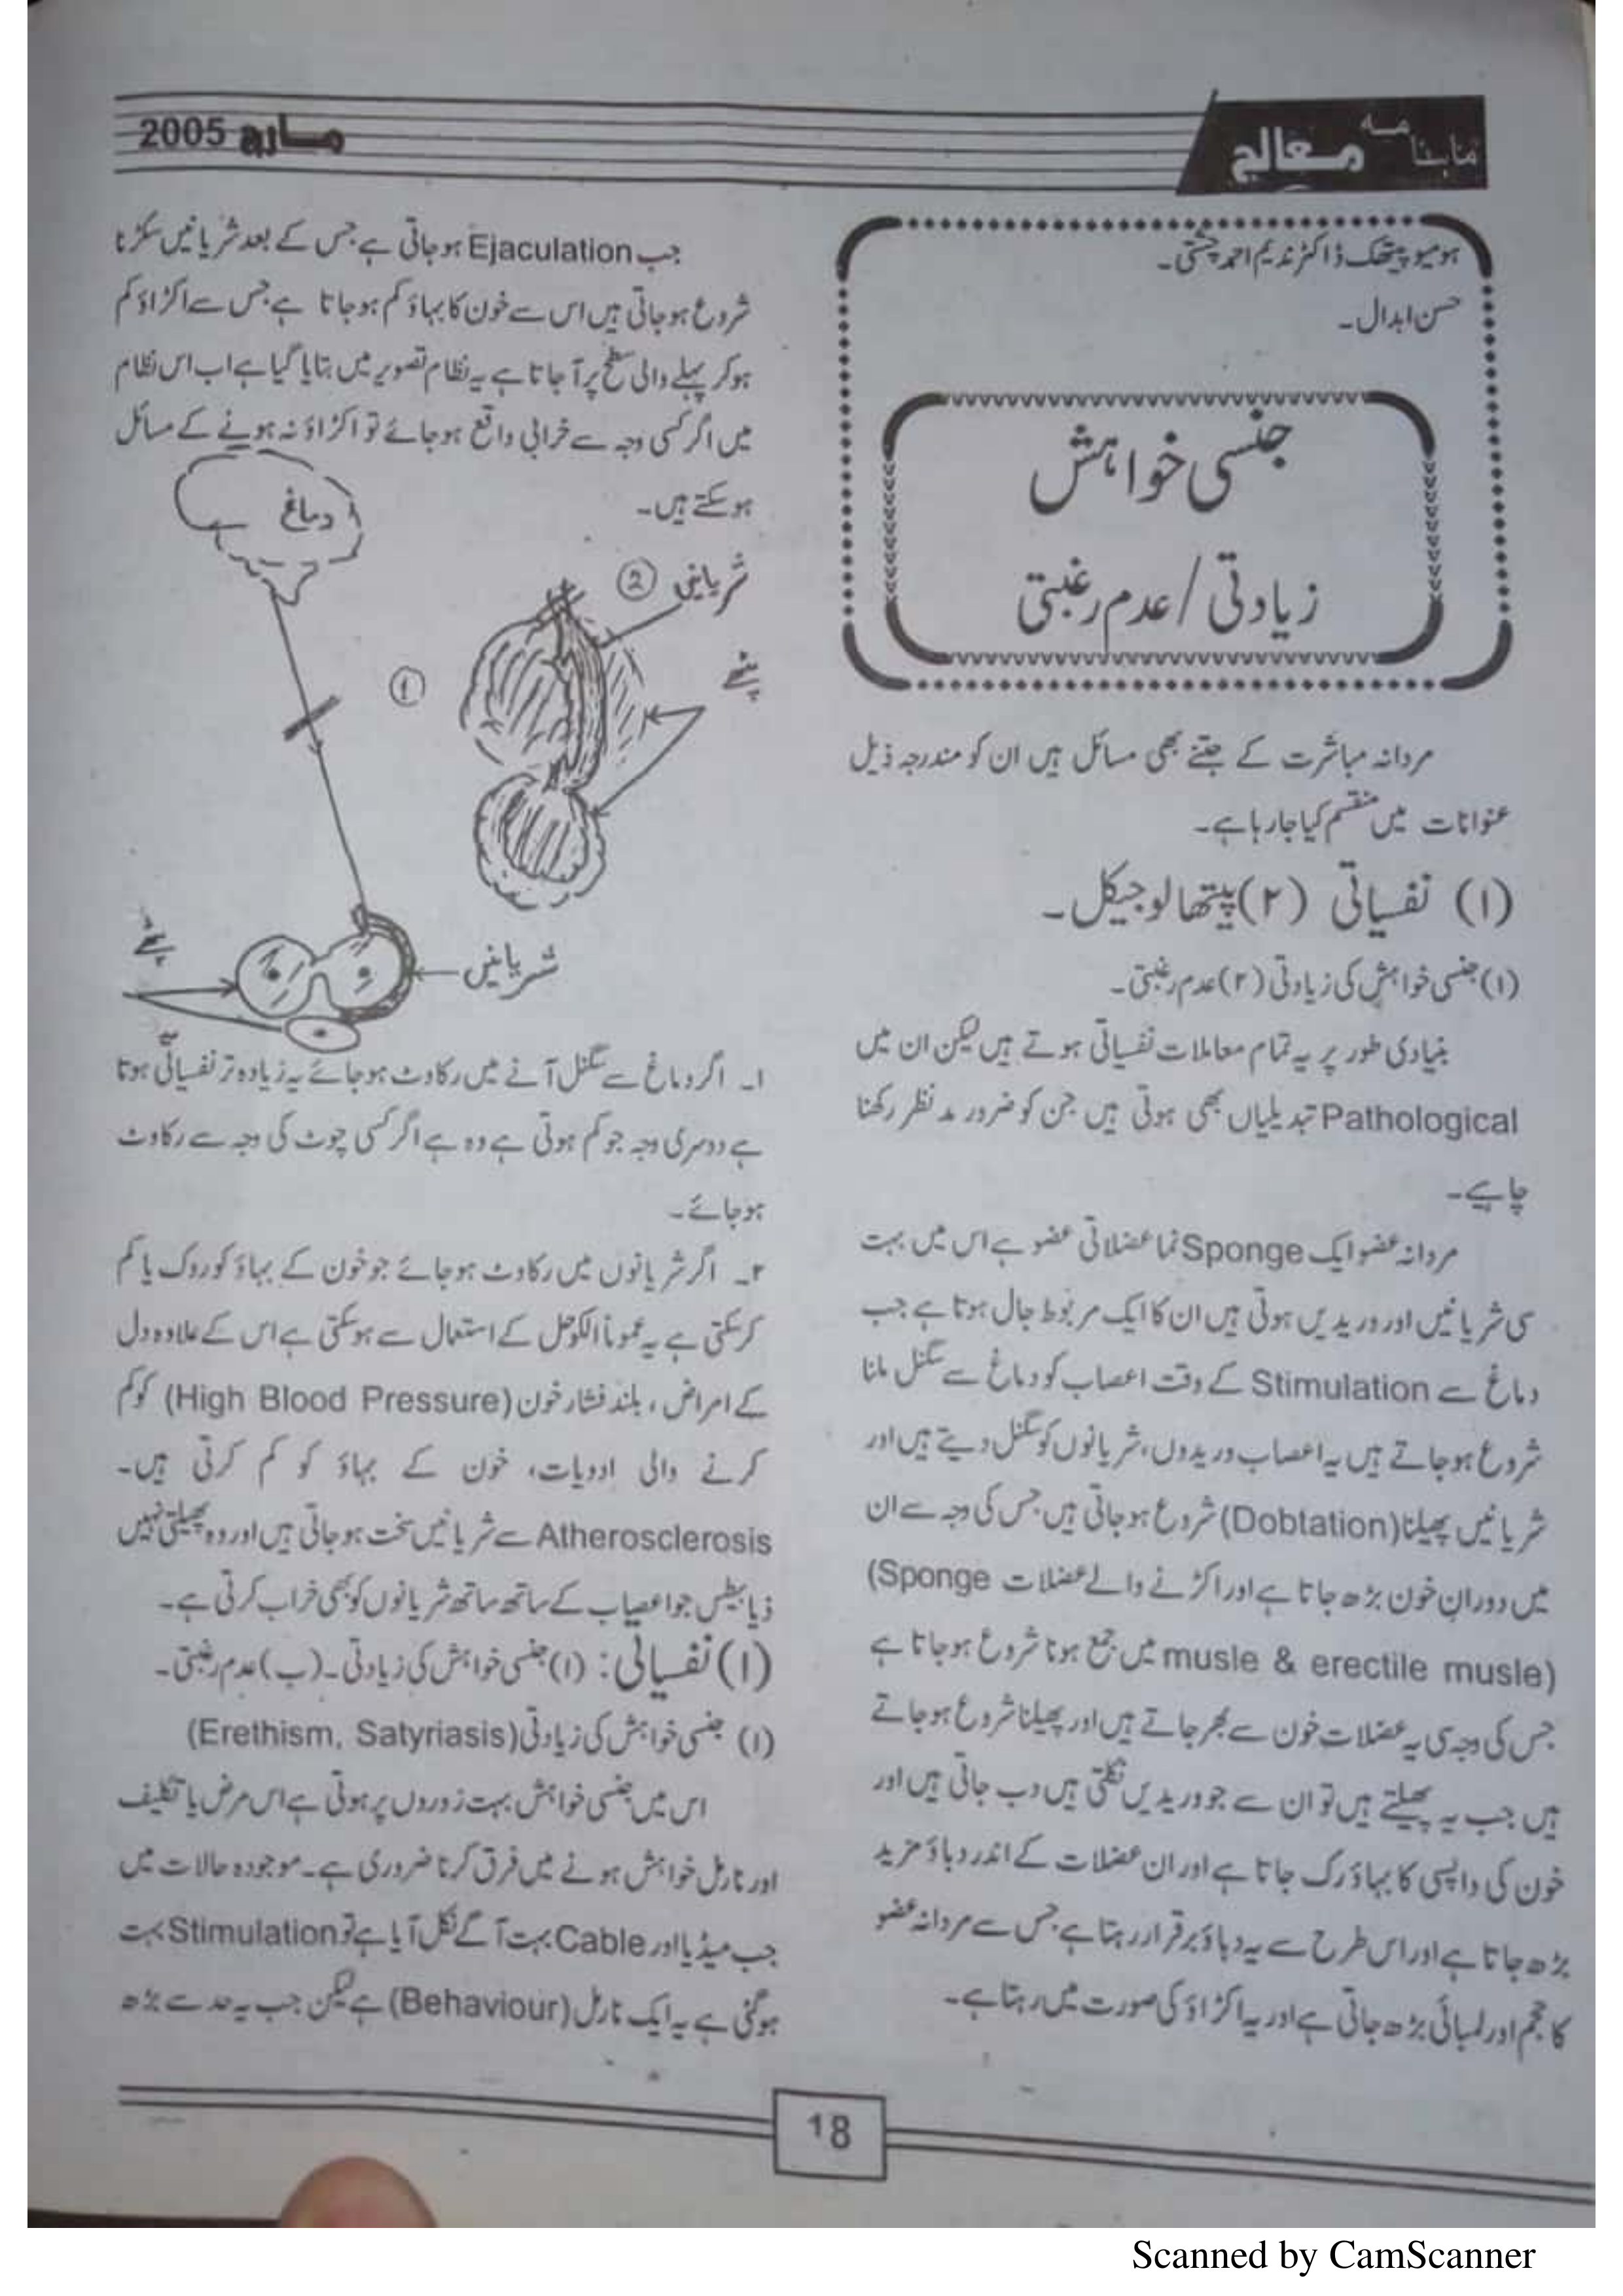 ماہنامہ معالج
مارچ 2005
ہومیو پیتھک ڈاکٹر ندیم احمد چشتی۔
حسن ابدال۔
جنسی خواہش
زیادتی / عدم رغبتی
مردانہ مباشرت کے جتنے بھی مسائل ہیں ان کو مندرجہ ذیل
عنوانات میں منقسم کیا جا رہا ہے۔
(۱) نفسیاتی (۲) پیتھالوجیکل۔
(۱) جنسی خواہش کی زیادتی (۲) عدم رغبتی۔
بنیادی طور پر یہ تمام معاملات نفسیاتی ہوتے ہیں لیکن ان میں
Pathological تبدیلیاں بھی ہوتی ہیں جن کو ضرور مد نظر رکھنا
چاہیے۔
مردانہ عضو ایک Sponge نما عضلاتی عضو ہے اس میں بہت
سی شریانیں اور وریدیں ہوتی ہیں ان کا ایک مربوط جال ہوتا ہے جب
دماغ سے Stimulation کے وقت اعصاب کو دماغ سے سگنل ملنا
شروع ہو جاتے ہیں یہ اعصاب وریدوں، شریانوں کو سگنل دیتے ہیں اور
شریانیں پھیلنا (Dobtation) شروع ہو جاتی ہیں جس کی وجہ سے ان
میں دوران خون بڑھ جاتا ہے اور اکڑنے والے عضلات (Sponge
musle & erectile musle) میں جمع ہونا شروع ہو جاتا ہے
جس کی وجہ سی یہ عضلات خون سے بھر جاتے ہیں اور پھیلنا شروع ہو جاتے
ہیں جب یہ پھیلتے ہیں تو ان سے جو وریدیں نکلتی ہیں دب جاتی ہیں اور
خون کی واپسی کا بہاؤ رک جاتا ہے اور ان عضلات کے اندر دباؤ مزید
بڑھ جاتا ہے اور اس طرح سے یہ دباؤ برقرار رہتا ہے جس سے مردانہ عضو
کا حجم اور لمبائی بڑھ جاتی ہے اور یہ اکڑاؤ کی صورت میں رہتا ہے۔
جب Ejaculation ہو جاتی ہے جس کے بعد شریانیں سکڑنا
شروع ہو جاتی ہیں اس سے خون کا بہاؤ کم ہو جاتا ہے جس سے اکڑاؤ کم
ہو کر پہلے والی سطح پر آ جاتا ہے یہ نظام تصویر میں بتایا گیا ہے اب اس نظام
میں اگر کسی وجہ سے خرابی واقع ہو جائے تو اکڑاؤ نہ ہونے کے مسائل
ہو سکتے ہیں۔
دماغ
شریانی ②
①
پٹھے
پٹھے
شریانیں
۱۔ اگر دماغ سے سگنل آنے میں رکاوٹ ہو جائے یہ زیادہ تر نفسیاتی ہوتا
ہے دوسری وجہ جو کم ہوتی ہے وہ ہے اگر کسی چوٹ کی وجہ سے رکاوٹ
ہو جائے۔
۲۔ اگر شریانوں میں رکاوٹ ہو جائے جو خون کے بہاؤ کو روک یا کم
کر سکتی ہے یہ عموماً الکوحل کے استعمال سے ہو سکتی ہے اس کے علاوہ دل
کے امراض، بلند فشار خون (High Blood Pressure) کو کم
کرنے والی ادویات، خون کے بہاؤ کو کم کرتی ہیں۔
Atherosclerosis سے شریانیں سخت ہو جاتی ہیں اور وہ پھیلتی نہیں
ذیابیطس جو اعصاب کے ساتھ ساتھ شریانوں کو بھی خراب کرتی ہے۔
(۱) نفسیاتی: (۱) جنسی خواہش کی زیادتی۔ (ب) عدم رغبتی۔
(۱) جنسی خواہش کی زیادتی (Erethism, Satyriasis)
اس میں جنسی خواہش بہت زوروں پر ہوتی ہے اس مرض یا تکلیف
اور نارمل خواہش ہونے میں فرق کرنا ضروری ہے۔ موجودہ حالات میں
جب میڈیا اور Cable بہت آگے نکل آیا ہے تو Stimulation بہت
ہو گئی ہے یہ ایک نارمل (Behaviour) ہے لیکن جب یہ حد سے بڑھ
18
Scanned by CamScanner